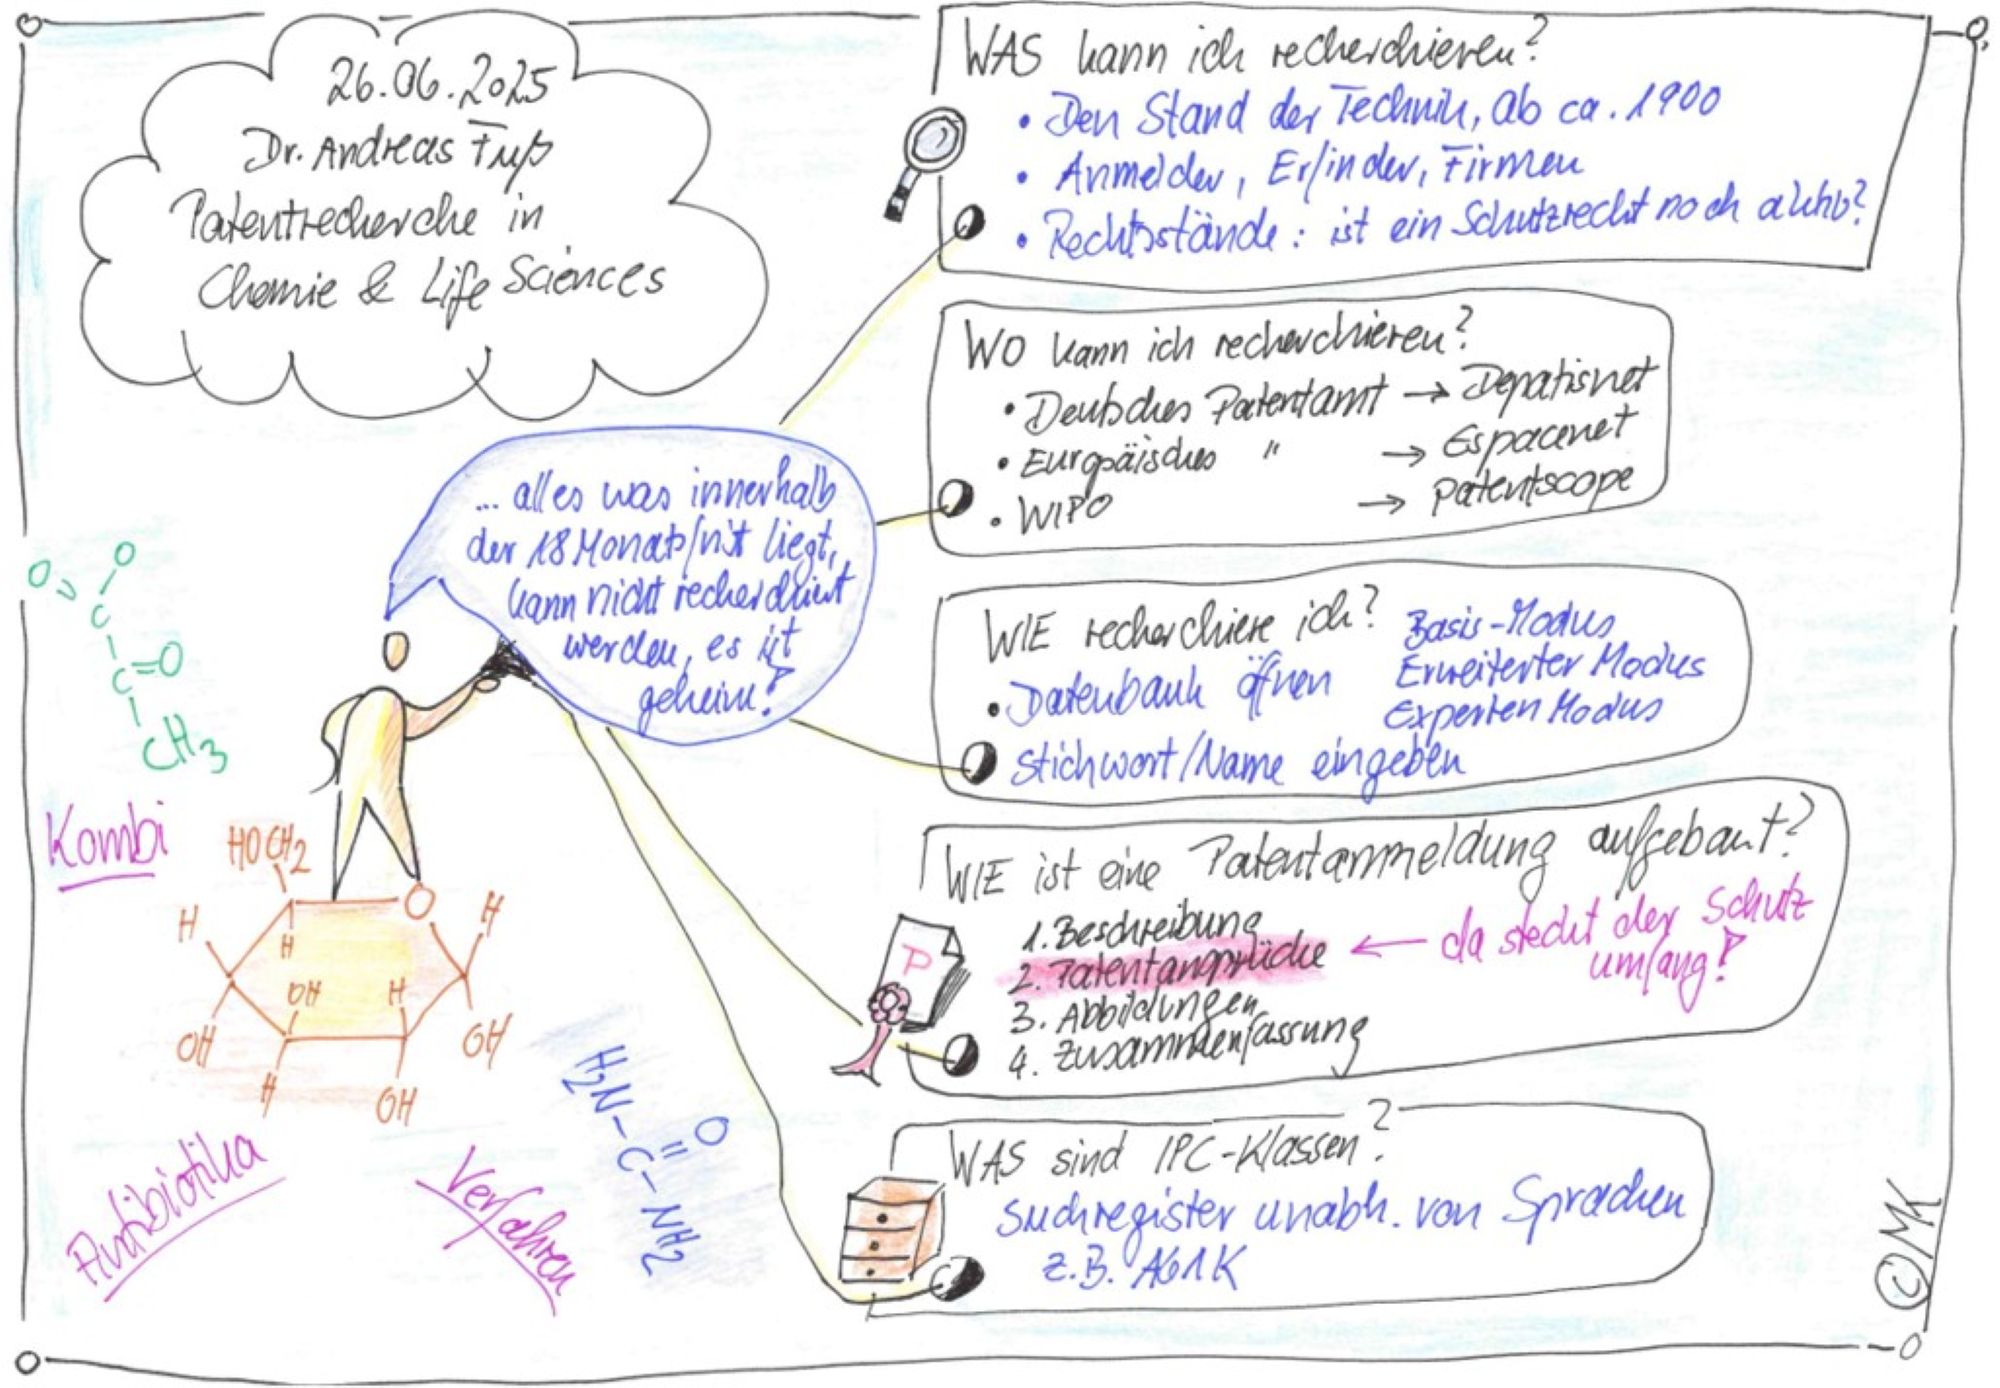 26.06.2025
Dr. Andreas Fuß
Patentrecherche in
Chemie & Life Sciences
WAS kann ich recherchieren?
• Den Stand der Technik, ab ca. 1900
• Anmelder, Erfinder, Firmen
• Rechtsstände: ist ein Schutzrecht noch aktiv?
WO kann ich recherchieren?
• Deutsches Patentamt → Depatisnet
• Europäisches " → Espacenet
• WIPO → Patentscope
... alles was innerhalb
der 18 Monatsfrist liegt,
kann nicht recherchiert
werden, es ist
geheim!
WIE recherchiere ich?
Basis-Modus
Erweiterter Modus
Experten Modus
• Datenbank öffnen
Stichwort/Name eingeben
WIE ist eine Patentanmeldung aufgebaut?
1. Beschreibung
2. Patentansprüche ← da steckt der Schutz
umfang!
3. Abbildungen
4. Zusammenfassung
P
WAS sind IPC-Klassen?
Suchregister unabh. von Sprachen
z.B. A61K
O
O
C
C=O
CH3
Kombi
HOCH2
O
H
H
H
OH
H
OH
OH
H
OH
H2N-C-NH2
O
Antibiotika
Verfahren
©MK